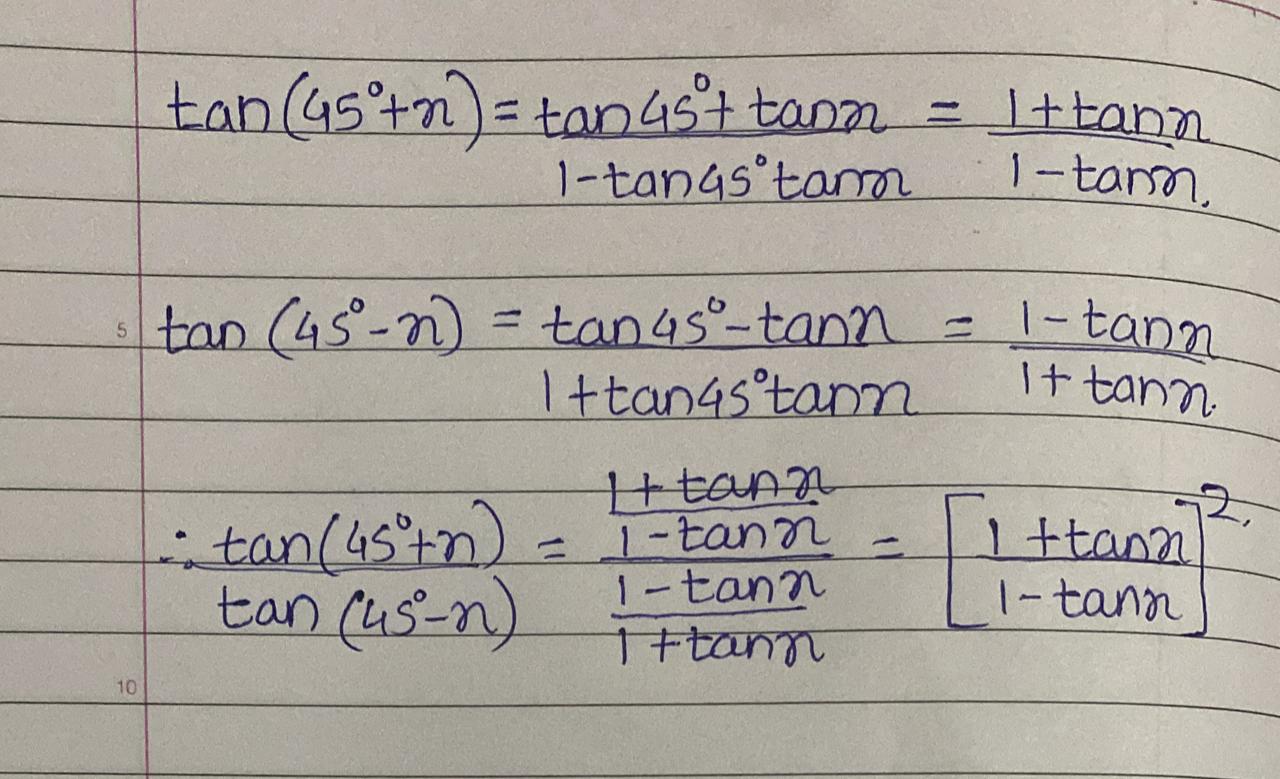 tan(45°+x) = tan45°+tanx / 1-tan45°tanx = 1+tanx / 1-tanx.
5 tan(45°-x) = tan45°-tanx / 1+tan45°tanx = 1-tanx / 1+tanx.
∴ tan(45°+x) / tan(45°-x) = (1+tanx / 1-tanx) / (1-tanx / 1+tanx) = [1+tanx / 1-tanx]².
10